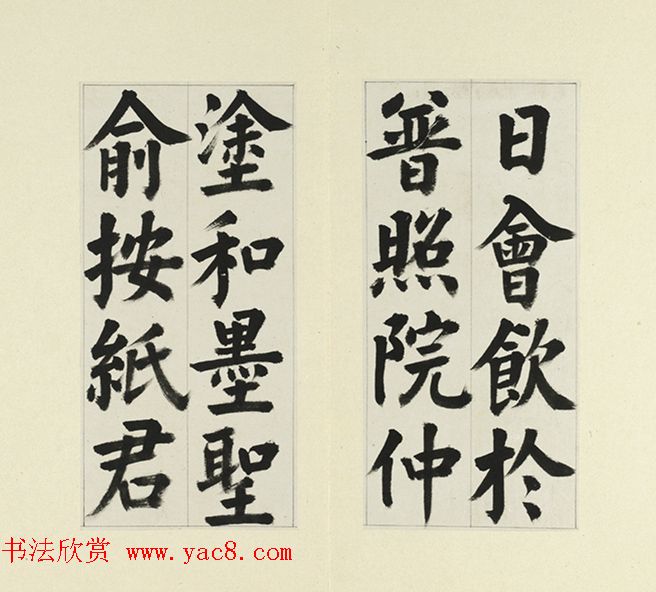 日會飲於
普照院仲
塗和墨聖
俞按紙君
书法欣赏 www.yac8.com